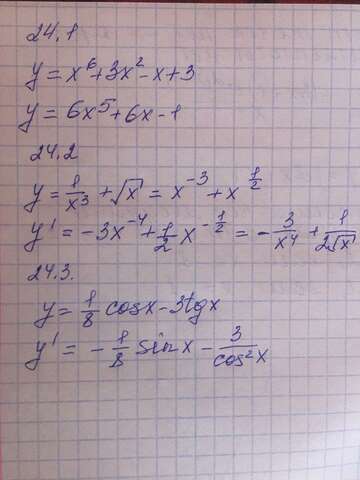 24.1
y = x⁶+3x²-x+3
y = 6x⁵+6x-1
24.2
y = 1/x³ + √x = x⁻³ + x^(1/2)
y' = -3x⁻⁴ + 1/2 x^(-1/2) = -3/x⁴ + 1/(2√x)
24.3.
y = 1/8 cosx - 3tgx
y' = - 1/8 sinx - 3/cos²x